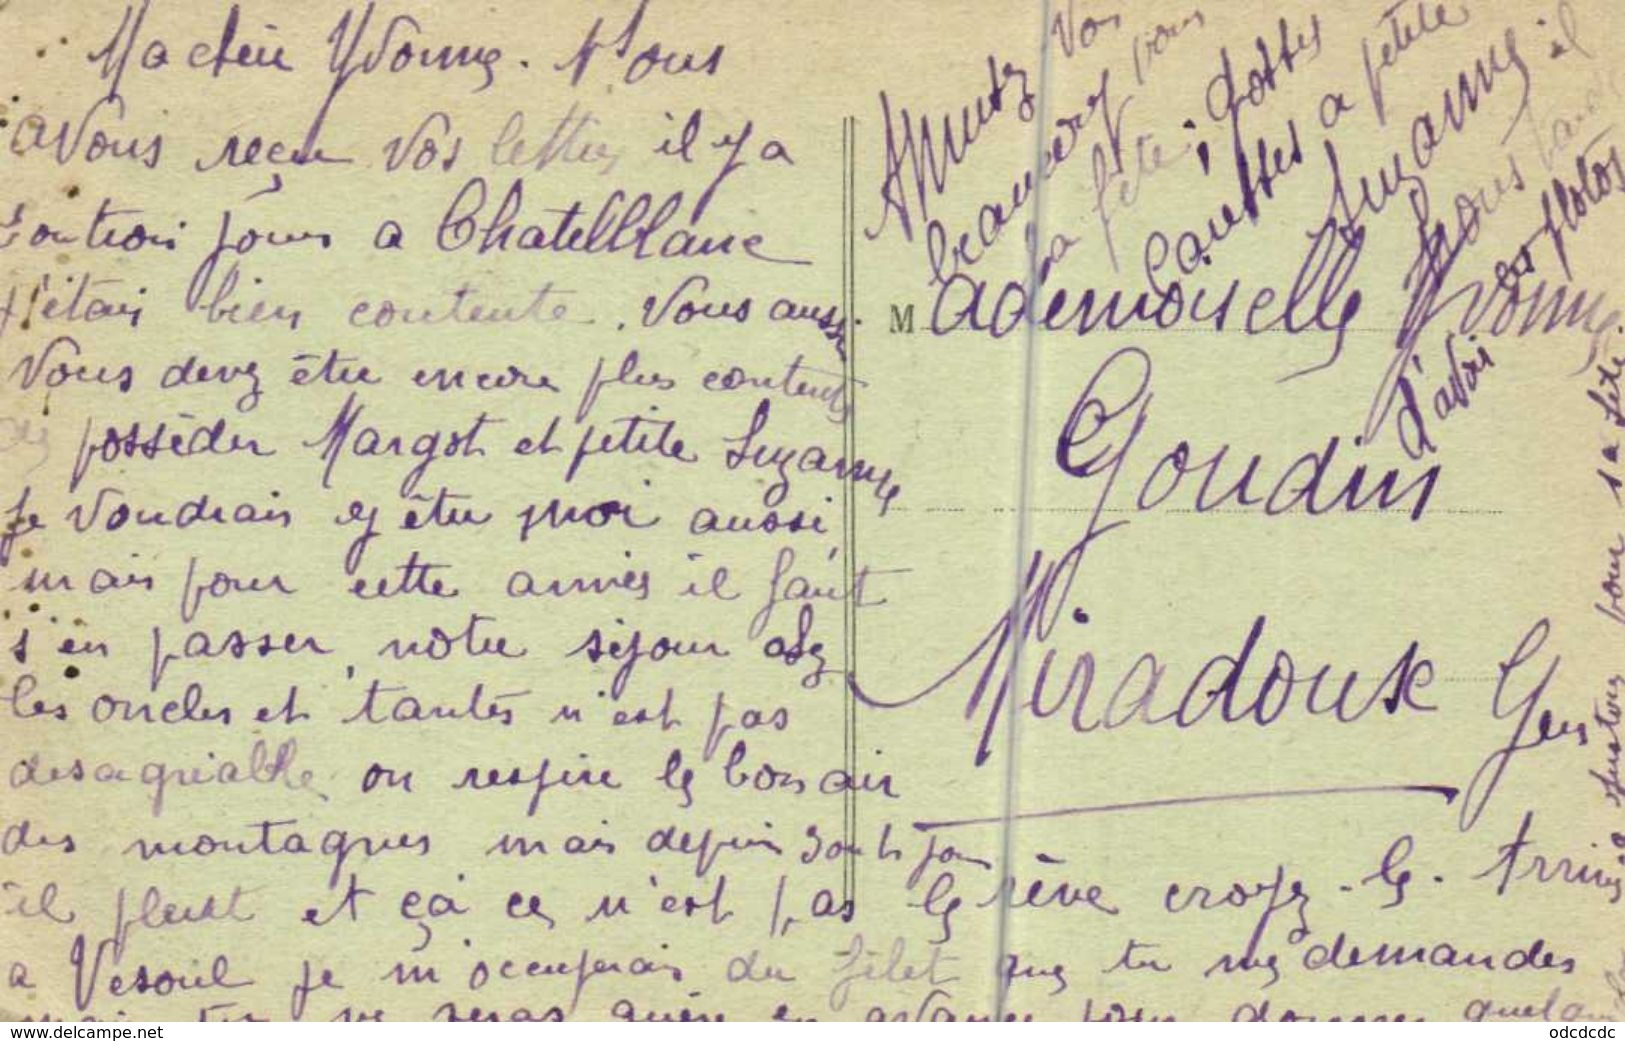 Ma chère Yvonne. Nous
avons reçu vos lettres il y a
trois jours a Chatelblanc
J'étais bien contente. Vous aussi
Vous devez être encore plus contents
de posséder Margot et petite Suzanne
Je voudrais y être moi aussi,
mais pour cette année il faut
s'en passer, notre séjour chez
les oncles et tantes n'est pas
desagréable on respire le bon air
des montagnes mais depuis jours
il pleut et çà ce n'est pas le rêve croyez-le. Arrivés
a Vesoul je m'occuperais du filet que tu me demandes
mais tu ne seras guère en avance pour donner
M ademoiselle Yvonne
Goudin
Miradoux Gers
Amusez vous
la fête; Gottes
a petite
Suzanne il
d'avoir vos photos
pour sa fête.
odcdcdc
www.delcampe.net